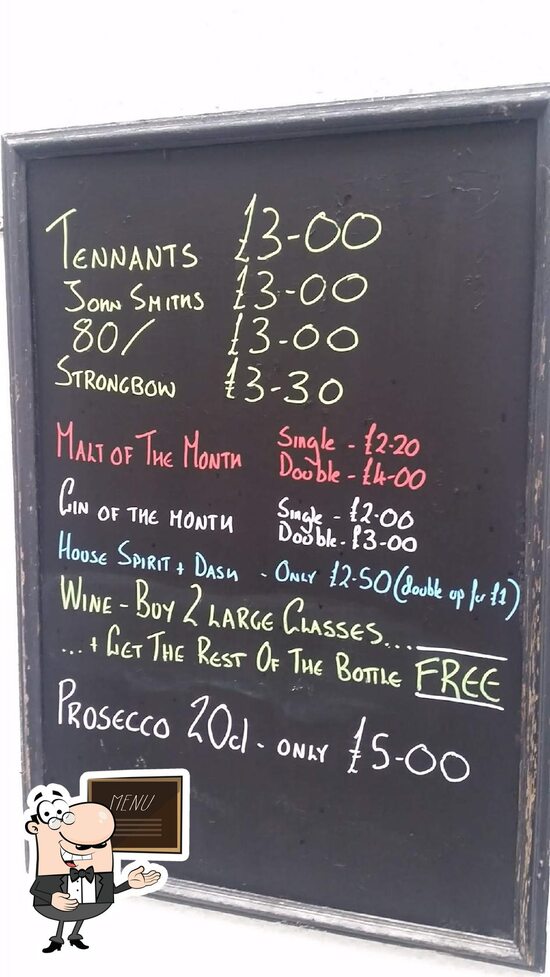 TENNANTS £3-00
JOHN SMITHS £3-00
80/ £3-00
STRONGBOW £3-30
MALT OF THE MONTH Single - £2-20
Double - £4-00
GIN OF THE MONTH Single - £2-00
Double - £3-00
HOUSE SPIRIT + DASH - ONLY £2-50 (double up for £1)
WINE - BUY 2 LARGE GLASSES....
... + GET THE REST OF THE BOTTLE FREE
PROSECCO 20cl - ONLY £5-00
MENU